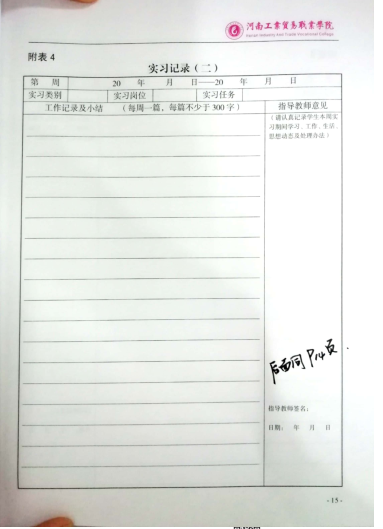 河南工业贸易职业学院
Henan Industry and Trade Vocational College
附表 4
实习记录（二）
第 周 20 年 月 日——20 年 月 日
实习类别 实习岗位 实习任务
工作记录及小结 （每周一篇，每篇不少于 300 字） 指导教师意见
（请认真记录学生本周实
习期间学习、工作、生活、
思想动态及处理办法）
后面同 P14页.
指导教师签名：
日期： 年 月 日
- 15 -